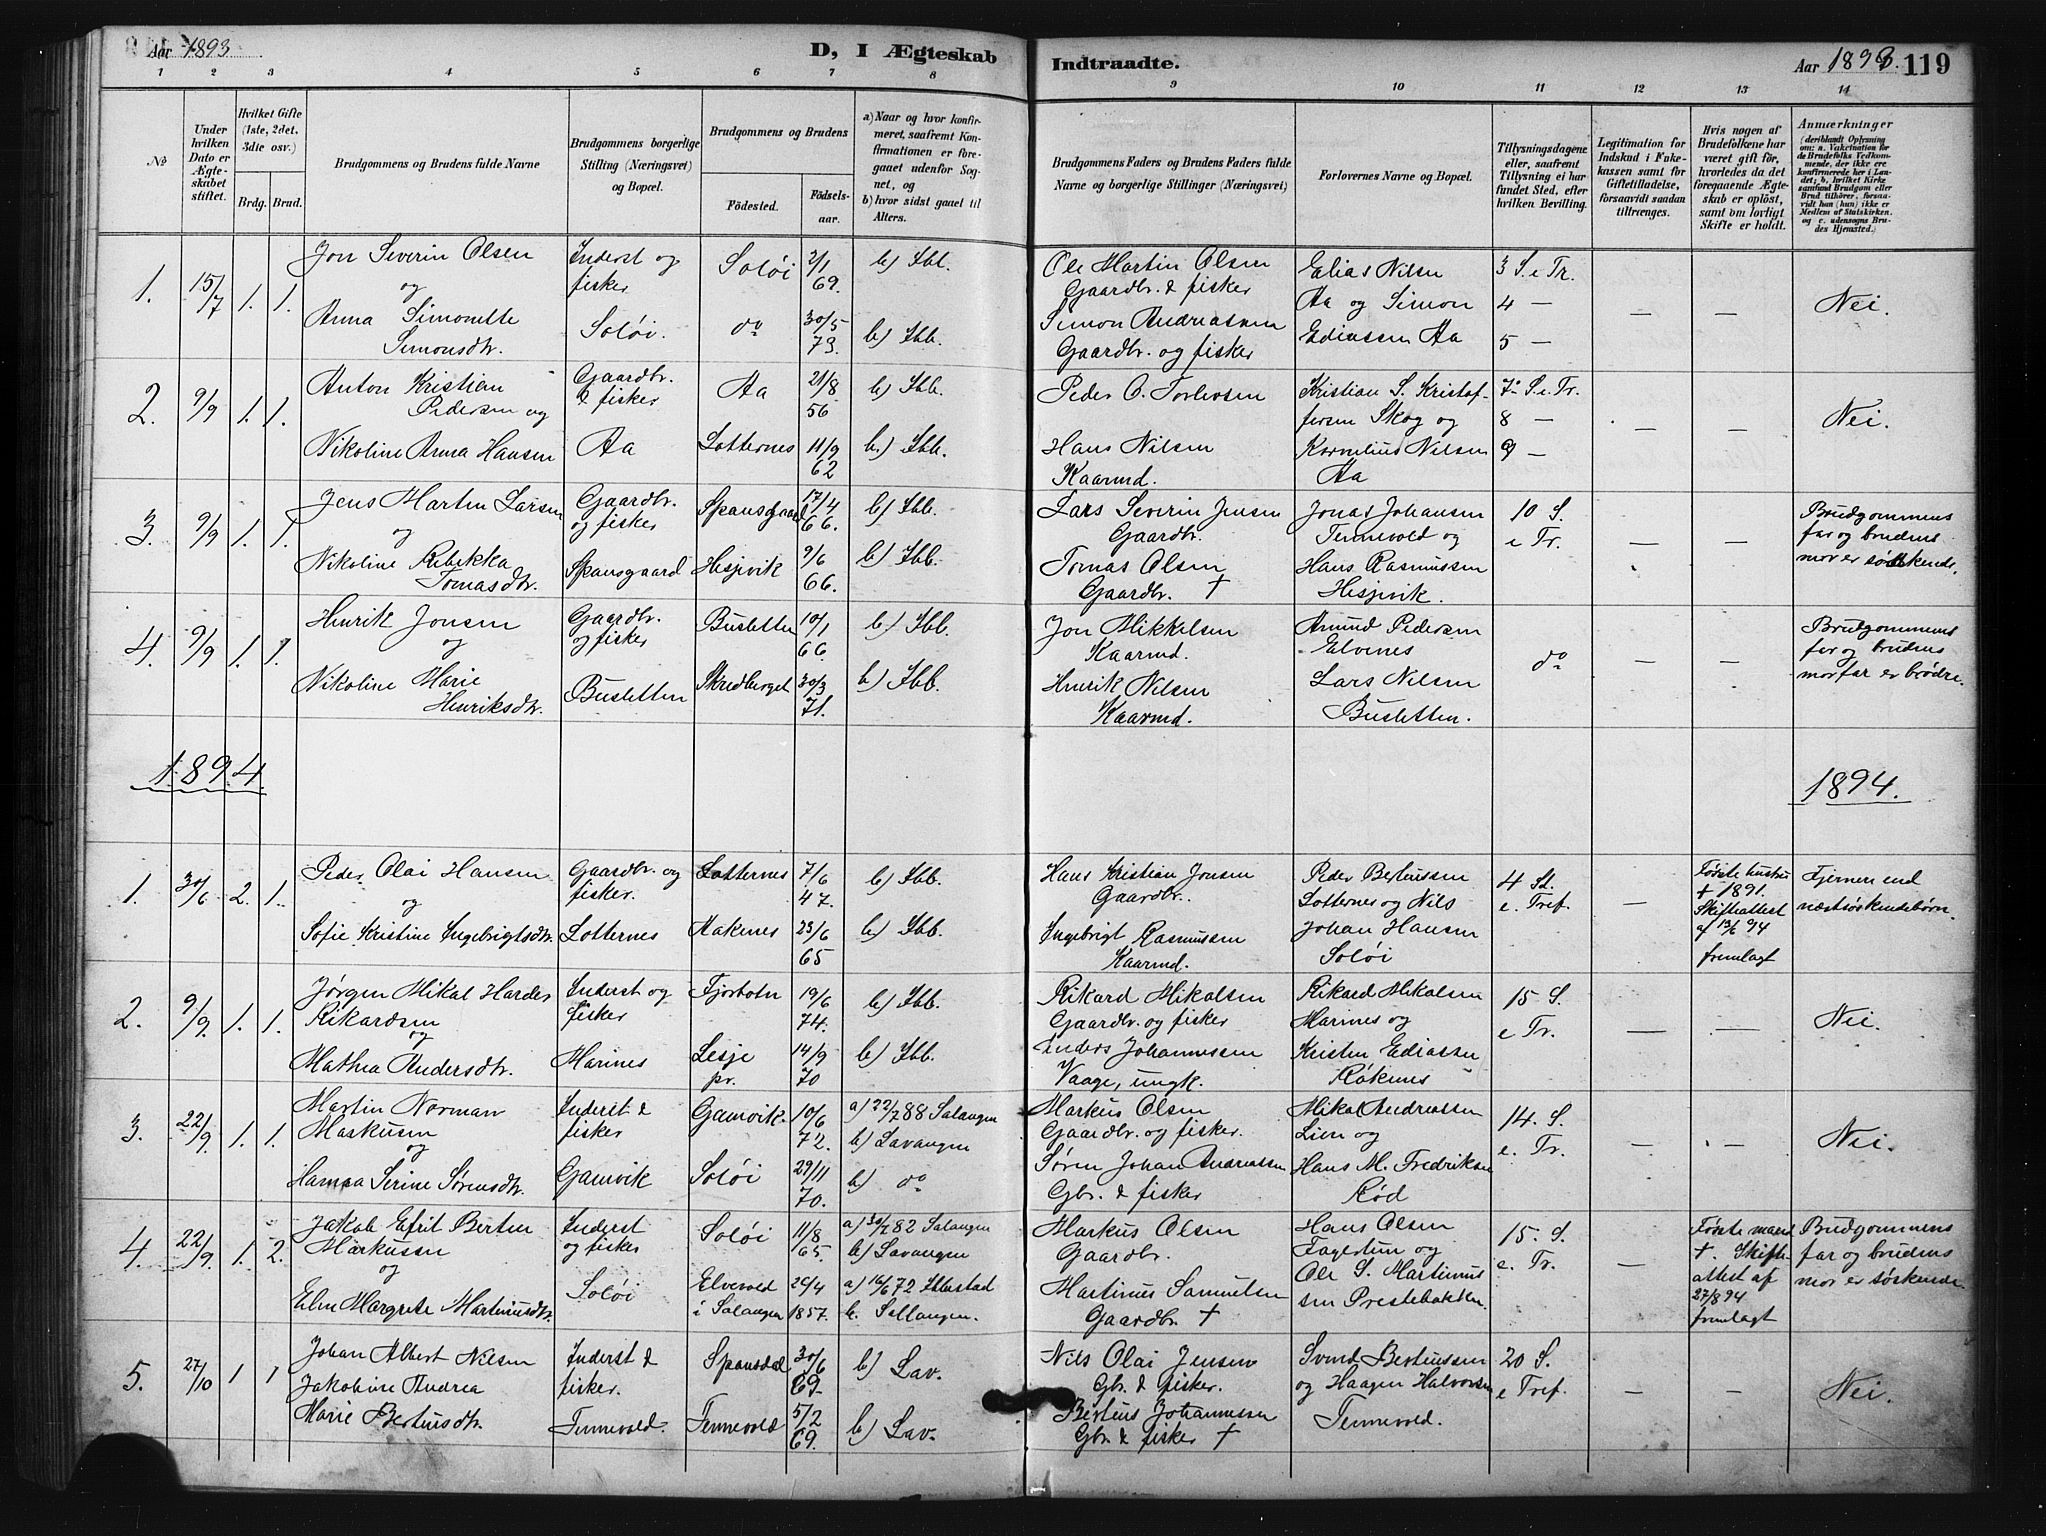 Aar 1893
D, I Ægteskab
Indtraadte.
Aar 1893.
119
1 2 3 4 5 6 7 8 9 10 11 12 13 14
No
Under hvilken Dato er Ægteskabet stiftet.
Hvilket Gifte (1ste, 2det, 3die osv.)
Brdg. Brud.
Brudgommens og Brudens fulde Navne
Brudgommens borgerlige Stilling (Næringsvei) og Bopæl.
Brudgommens og Brudens
Födested.
Födselsaar.
a) Naar og hvor konfirmeret, saafremt Konfirmationen er foregaaet udenfor Sognet, og
b) hvor sidst gaaet til Alters.
Brudgommens Faders og Brudens Faders fulde Navne og borgerlige Stillinger (Næringsvei)
Forlovernes Navne og Bopæl.
Tillysningsdagene eller, saafremt Tillysning ei har fundet Sted, efter hvilken Bevilling.
Legitimation for Indskud i Enkekassen samt for Giftetilladelse, forsaavidt saadan tiltrænges.
Hvis nogen af Brudefolkene har været gift för, hvorledes da det foregaaende Ægteskab er oplöst, samt om lovligt Skifte er holdt.
Anmærkninger
(deriblandt Oplysning om: a. Vaksination for de Brudefolks Vedkommende, der ikke ere konfirmerede her i Landet; b. hvilket Kirkesamfund Brudgom eller Brud tilhörer, forsaavidt han (hun) ikke er Medlem af Statskirken, og c. udensogns Brudes Hjemsted.)
1. 15/7 1. 1.
Jon Severin Olsen
og
Anna Simonette
Simonsdtr.
Inderst og
fisker
Soløi.
Soløi
do
2/1
69.
30/5
73.
b) Ibb.
b) Ibb.
Ole Martin Olsen
Gaardbr. & fisker
Simon Andreassen
Gaardbr. og fisker
Elias Nilsen
Aa og Simon
Ediassen Aa
3 S. e Tr.
4 —
5 —
— —
Nei.
2. 9/9 1. 1.
Anton Kristian
Pedersen og
Nikoline Anna Hansen
Gaardbr.
& fisker
Aa
Aa
Lotternes
21/8
56
11/9
62
b) Ibb.
b.) Ibb.
Peder O. Torlevsen
Hans Nilsen
Kaarmd.
Kristian S. Kristof-
fersen Skog og
Kornelius Nilsen
Aa
7. S. e. Tr.
8 —
9 —
— —
Nei.
3. 9/9 1. 1.
Jens Martin Larsen
og
Nikoline Rebekka
Tomasdtr.
Gaardbr.
og fisker
Spansgaard
Spansgaard
Hesjevik
17/4
66.
9/6
66.
b) Ibb.
b) Ibb.
Lars Severin Jensen
Gaardbr.
Tomas Olsen
Gaardbr. †
Jonas Johansen
Tennevold og
Hans Rasmussen
Hesjevik.
10 S.
e Tr.
— —
Brudgommens
far og brudens
mor er søskende.
4. 9/9 1. 1.
Henrik Jonsen
og
Nikoline Marie
Henriksdtr.
Gaardbr.
og fisker
Busletten
Busletten
Skredberget
10/1
66.
30/3
71.
b) Ibb.
b) Ibb.
Jon Mikkelsen
Kaarmd.
Henrik Nilsen
Kaarmd.
Amund Pedersen
Elvenes
Lars Nilsen
Busletten.
do
— —
Brudgommens
far og brudens
morfar er brødre.
1894.
1894.
1. 30/6 2. 1.
Peder Olai Hansen
og
Sofie Kristine Ingebrigtsdtr.
Gaardbr. og
fisker.
Lotternes
Lotternes
Aakenes
7/6
47.
23/6
65
b) Ibb.
b.) Ibb.
Hans Kristian Jonsen
Gaardbr.
Ingebrigt Rasmussen
Kaarmd.
Peder Berteussen
Lotternes og Nils
Johan Hansen
Soløi
4 S.
e. Tref.
—
Første hustru
† 1891.
Skifteattest
af 13/6 94
fremlagt
Fjernere end
næstsøskendebørn.
2. 9/9. 1. 1.
Jørgen Mikal Hardes
Rikardsen
og
Mathea Andersdtr.
Inderst og
fisker
Marines
Fjorbotn
Lesje
pr.
19/6
74.
14/9
70
b) Ibb.
b) Ibb.
Rikard Mikalsen
Gaardbr. og fisker
Anders Johannessen
Vaage, ungk.
Rikard Mikalsen
Marines og
Kristen Ediassen
Røkenes
15 S.
e Tr.
— —
Nei.
3. 22/9. 1. 1.
Martin Norman
Markusen
og
Hanna Serine Sørensdtr.
Inderst &
fisker
Gamvik
Gamvik.
Soløi
10/6
72.
29/11
70.
a) 22/7 88 Salangen
b) Lavangen
b) do
Markus Olsen
Gaardbr. og fisker.
Søren Johan Andreassen
Gbr. & fisker
Mikal Andreassen
Lien og
Hans M. Fredriksen
Rød
14. S.
e. Tr.
— —
Nei.
4. 22/9. 1. 2.
Jakob Efrit Berten
Markussen
og
Elen Margrete Martinusdtr.
Inderst
og fisker
Soløi
Soløi
Elvevold
i Salangen
11/8
65.
26/4
1857.
a) 30/7 82 Salangen
b) Lavangen
a) 16/6 72 Ibbestad
b. Sallangen.
Markus Olsen
Gaardbr.
Martinus Samuelsen
Gaardbr. †
Hans Olsen
Fagertun og
Ole S. Martinus
sen Prestebakken.
15. S.
e. Tr.
—
Første mand
†. Skifte-
attest af
27/8 94
fremlagt
Brudgommens
far og brudens
mor er søskende
5. 27/10 1 1
Johan Albert Nilsen
Jakobine Andrea
Marie Berteusdtr.
Inderst &
fisker.
Tennevold.
Spansdal
Tennevold
30/6
69.
5/2
69.
b) Lav.
b) Lav.
Nils Olai Jensen
Gbr. & fisker.
Berteus Johannessen
Gbr. & fisker †
Svend Berteussen
og Haagen Halvorsen
Tennevold.
20 S.
e Tref.
— —
Nei.